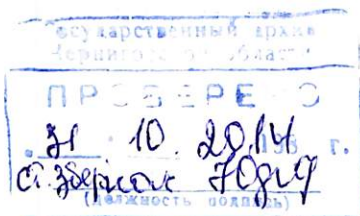 Государственный архив
Черниговской области
ПРОВЕРЕНО
31 10. 2014 г.
ст. зберігач
(должность подпись)